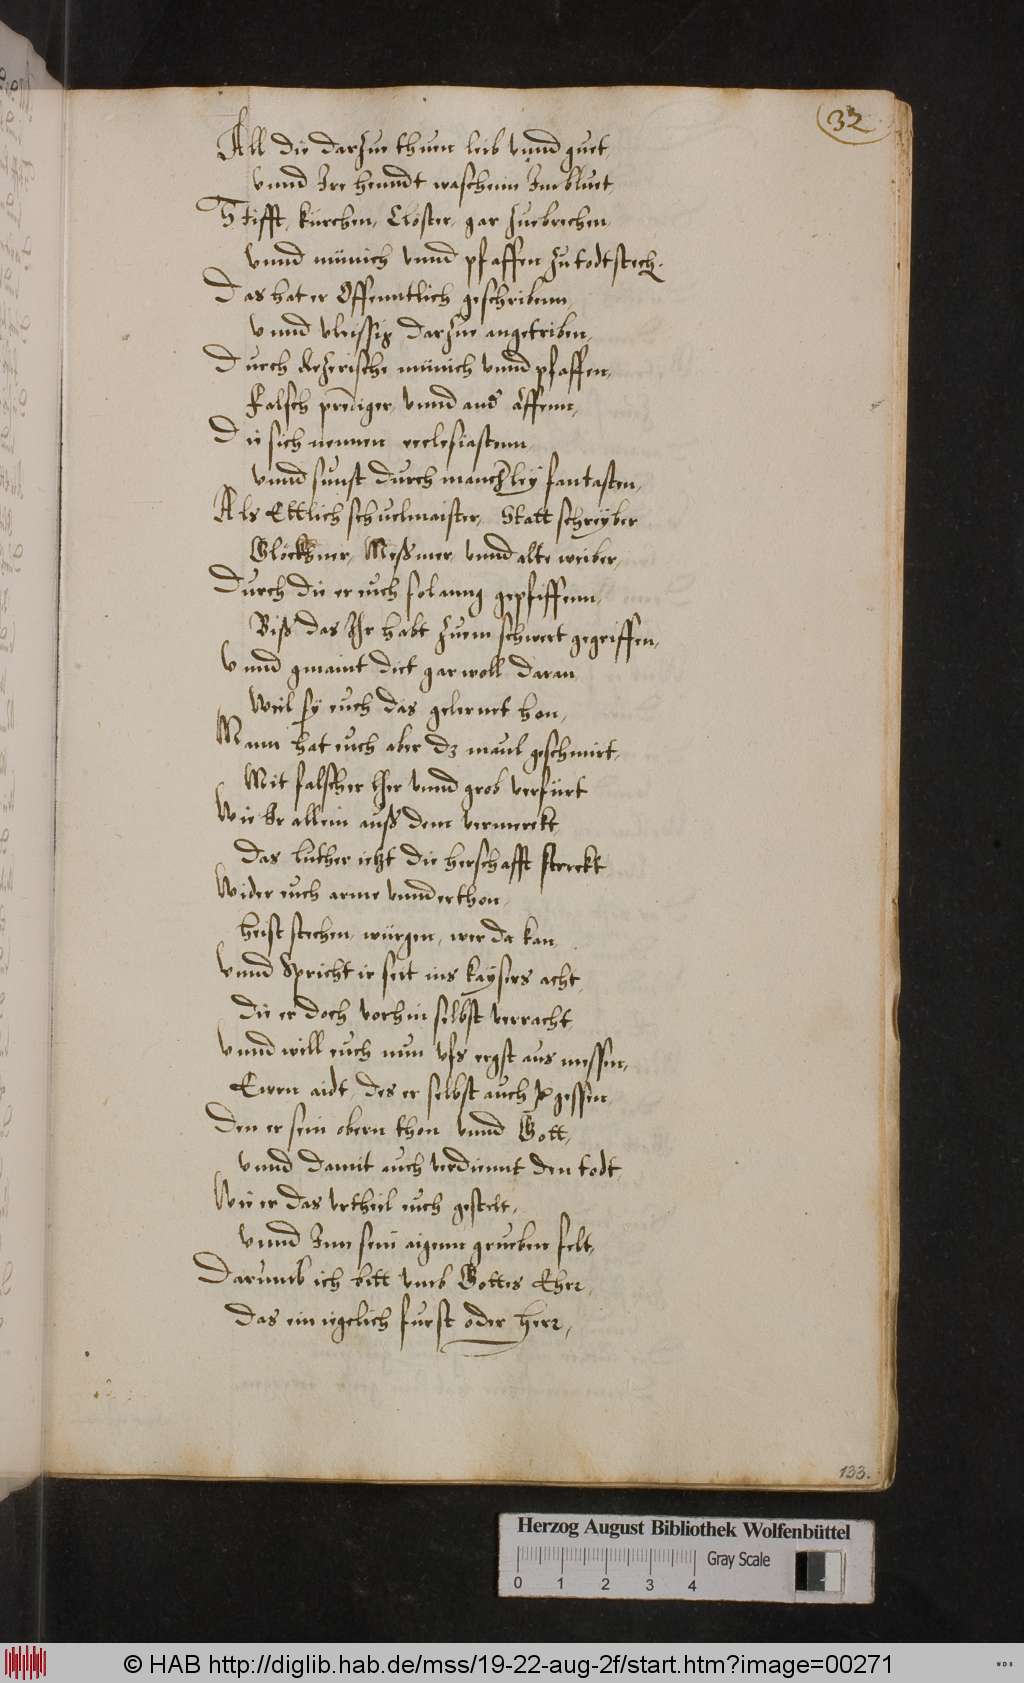 32
All die darzue thuen leib vnnd guet,
vnnd Ire henndt waschenn Im bluet,
Stifft, kürchen, Clöster, gar zuebrechen,
vnnd münich vnnd pfaffen zu todt stech.
Das hat er Offenntlich geschribenn,
vnnd vleissig darzue angetriben,
Durch kezerische münich vnnd pfaffen,
Falsch prediger vnnd and affenn,
Die sich nennen ecclesiastenn,
vnnd sunst durch mancherley fantasten,
Als Ettlich schuelmaister, Statt schreyber
Glöckhner, Meßmer, vnnd alte weiber,
Durch die er euch solanng gepfiffenn,
Biß das Ihr habt zuem schwert gegriffen,
vnnd gmaint diet gar woll daran
Weil sy euch das gelernet han,
Mann hat euch aber dz maul geschmirt,
Mit falscher lher vnnd grob verfürt
Wie Ir allein auß dem vermerckt,
Das luther iezt die herschafft sterckt
Wider euch arme vnnderthon,
heist stechen, würgen, wer da kan,
vnnd Spricht ir seit ins kaysers acht,
die er doch vorhin selbst verracht,
vnnd will euch nun vfs ergst aus messen,
Ewrn aidt, des er selbst auch vergessen
den er sein obern thon vnnd Gott,
vnnd damit auch verdiennt den todt,
Wie er das vrtheil euch gestelt,
vnnd Inn sein aigenn grueben felt,
Darumb ich bitt vmb Gottes Eherr,
das ein iegelich furst oder herr,
133.
Herzog August Bibliothek Wolfenbüttel
Gray Scale
0 1 2 3 4
© HAB http://diglib.hab.de/mss/19-22-aug-2f/start.htm?image=00271